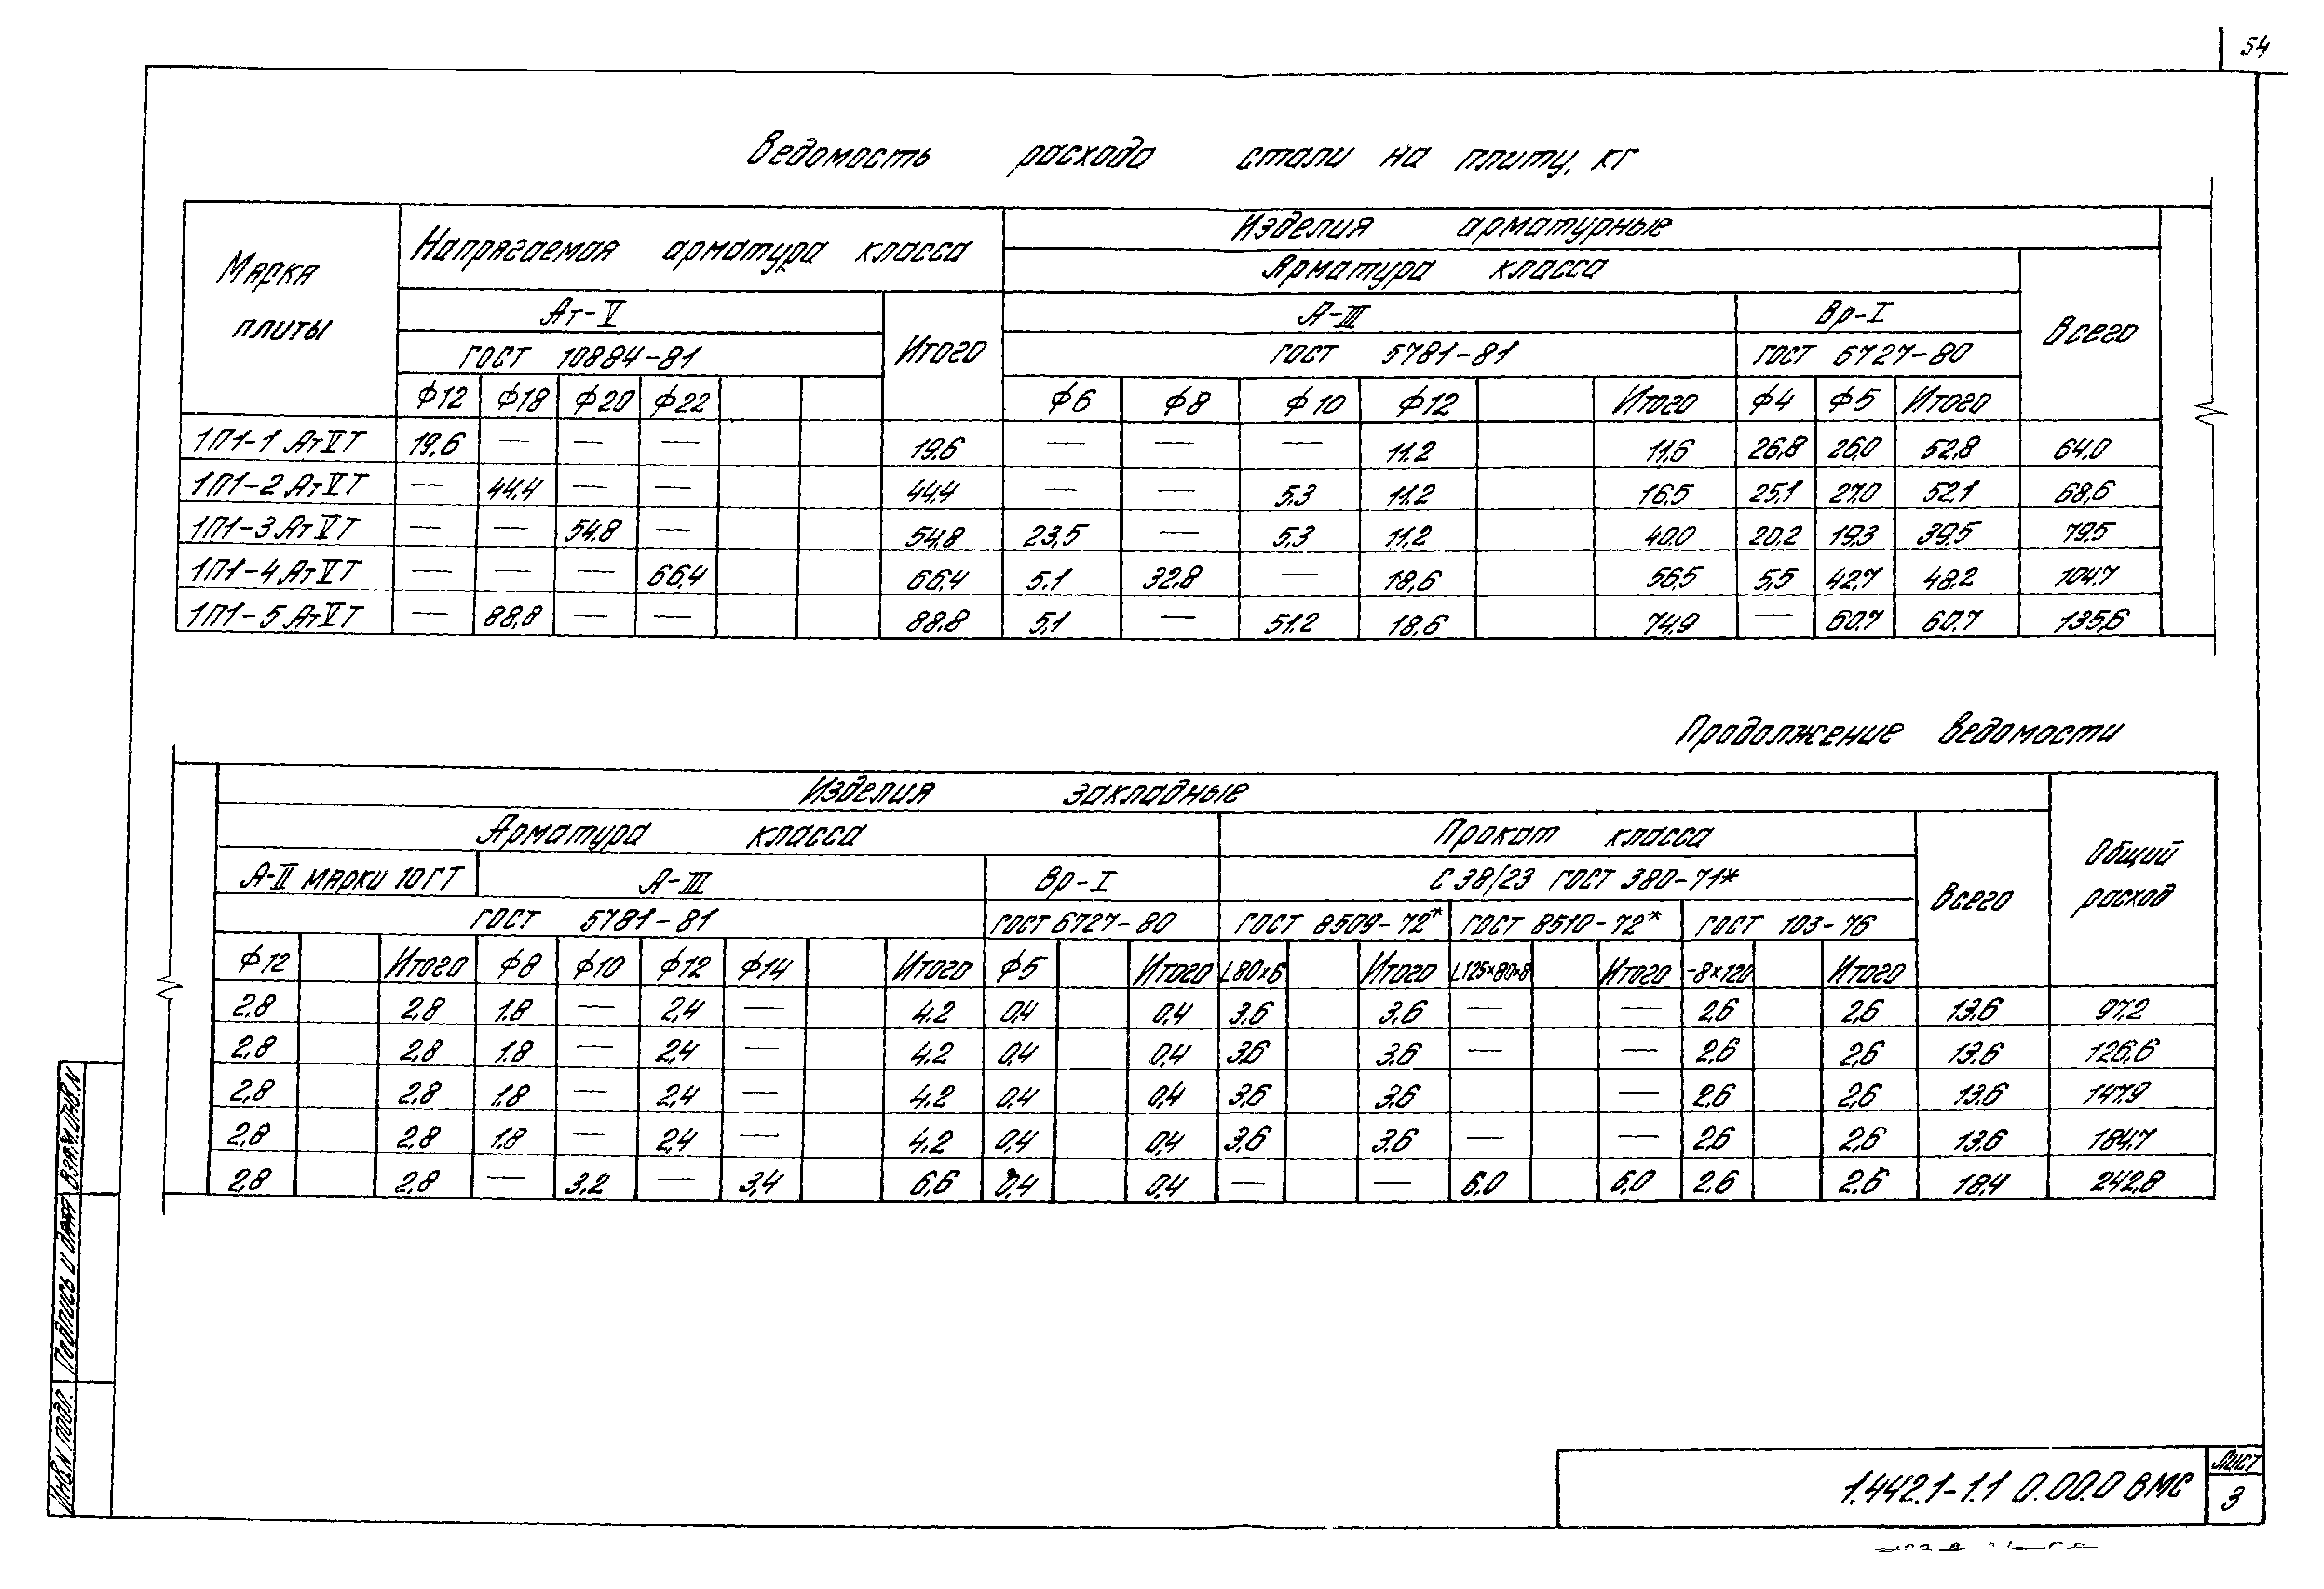 54
Ведомость расхода стали на плиту, кг
Марка плиты
Напрягаемая арматура класса
Изделия арматурные
Арматура класса
Ат-V Итого А-III Вр-I Всего
ГОСТ 10884-81 ГОСТ 5781-81 ГОСТ 6727-80
ф12 ф18 ф20 ф22 ф6 ф8 ф10 ф12 Итого ф4 ф5 Итого
1П1-1 АтVТ 19,6 — — — 19,6 — — — 11.2 11,6 26,8 26,0 52,8 64,0
1П1-2 АтVТ — 44,4 — — 44,4 — — 5,3 11.2 16,5 25,1 27,0 52,1 68,6
1П1-3 АтVТ — — 54,8 — 54,8 23,5 — 5,3 11,2 40,0 20,2 19,3 39,5 79,5
1П1-4 АтVТ — — — 66,4 66,4 5.1 32,8 — 18,6 56,5 5,5 42,7 48,2 104,7
1П1-5 АтVТ — 88,8 — — 88,8 5,1 — 51,2 18,6 74,9 — 60,7 60,7 135,6
Продолжение ведомости
Изделия закладные
Арматура класса Прокат класса Всего Общий расход
А-II марки 10ГТ А-III Вр-I С 38/23 ГОСТ 380-71*
ГОСТ 5781-81 ГОСТ 6727-80 ГОСТ 8509-72* ГОСТ 8510-72* ГОСТ 103-76
ф12 Итого ф8 ф10 ф12 ф14 Итого ф5 Итого L80×6 Итого L125×80×8 Итого -8×120 Итого
2,8 2,8 1.8 — 2,4 — 4.2 0,4 0,4 3,6 3,6 — — 2,6 2,6 13,6 97,2
2,8 2,8 1.8 — 2,4 — 4.2 0,4 0,4 3,6 3,6 — — 2,6 2,6 13,6 126,6
2,8 2,8 1.8 — 2,4 — 4.2 0,4 0,4 3,6 3,6 — 2,6 2,6 13,6 147,9
2,8 2,8 1.8 — 2,4 — 4.2 0,4 0,4 3,6 3,6 — — 2,6 2,6 13,6 184,7
2,8 2,8 — 3,2 — 3,4 6,6 0,4 0,4 — — 6,0 6,0 2,6 2,6 18,4 242,8
Взам. инв. N
Подпись и дата
Инв. N подл.
1.442.1-1.1 0.00.0 ВМС
Лист
3